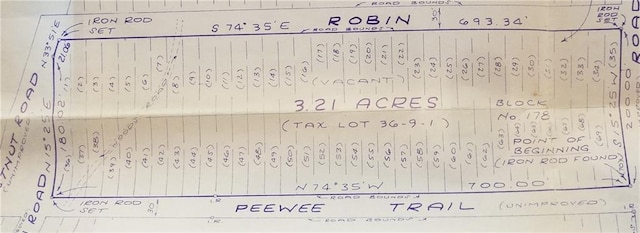 ROAD BOUNDS
IRON ROD
SET
S 74°35'E
ROBIN
30'
693.34'
IRON
ROD
SET
ROAD BOUNDS
N 33°51'E
21.06
(1)
(2)
(3)
(4)
(5)
(6)
(7)
(8)
(9)
(10)
(11)
(12)
(13)
(14)
(15)
(16)
(17)
(18)
(19)
(20)
(21)
(22)
(23)
(24)
(25)
(26)
(27)
(28)
(29)
(30)
(31)
(32)
(33)
(34)
(35)
(VACANT)
WOODS ROAD
3.21 ACRES
(TAX LOT 36-9-1)
BLOCK
No 178
POINT OF
BEGINNING
(IRON ROD FOUND)
S 15°25'W
200.00'
180.02'
N 15°25'E
TNUT ROAD
(UNIMPROVED)
(36)
(37)
(38)
(39)
(40)
(41)
(42)
(43)
(44)
(45)
(46)
(47)
(48)
(49)
(50)
(51)
(52)
(53)
(54)
(55)
(56)
(57)
(58)
(59)
(60)
(61)
(62)
(63)
(67)
(68)
(69)
N 74°35'W
700.00'
IRON ROD
SET
30'
ROAD BOUNDS
PEEWEE TRAIL (UNIMPROVED)
ROAD BOUNDS